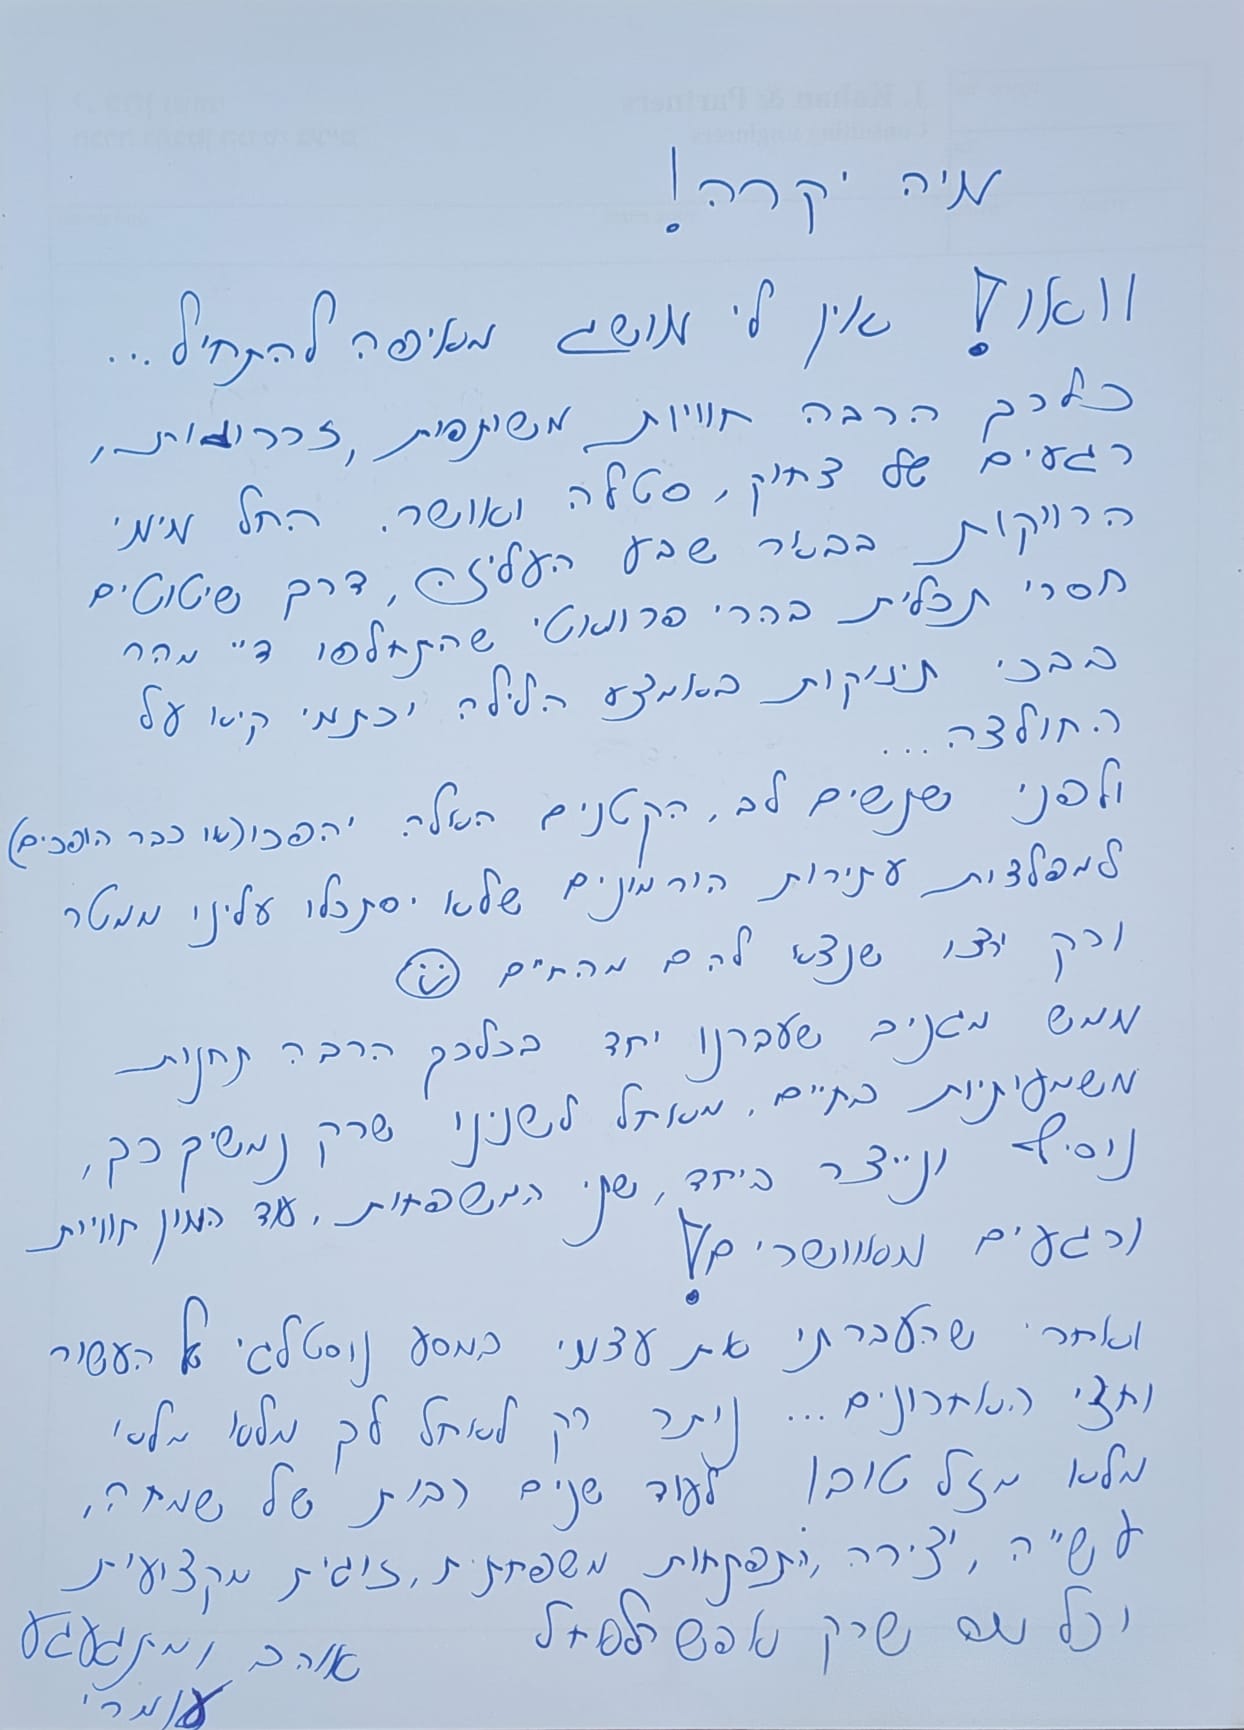 מיה יקרה!
וואו! אין לי מושג מאיפה להתחיל...
כל כך הרבה חוויות משותפות, זכרונות,
רגעים של צחוק, סטלה ואושר. החל מימי
הרווקות בבאר שבע העליזה, דרך שיטוטים
חסרי תכלית בהרי פרוואטי שהתחלפו די מהר
בבכי תינוקות באמצע הלילה וכתמי קיא על
החולצה...
ולפני שנשים לב, הקטנים האלה יהפכו (או כבר הופכים)
למפלצות עתירות הורמונים שלא יסתכלו עלינו ממטר
ורק ירצו שנצא להם מהחיים
ממש מגניב שעברנו יחד בכל כך הרבה תחנות
משמעותיות בחיים. מאחל לשנינו שרק נמשיך כך,
נוסיף ונייצר ביחד, שתי המשפחות, עוד המון חוויות
ורגעים מאושרים!
ואחרי שהעברתי את עצמי במסע נוסטלגי על העשור
וחצי האחרונים... נותר רק לאחל לך מלא מלא
מלא מזל טוב! לעוד שנים רבות של שמחה,
עשייה, יצירה, התפתחות משפחתית, זוגית מקצועית
וכל מה שרק אפשר לאחל
אוהב ומתגעגע
עומרי